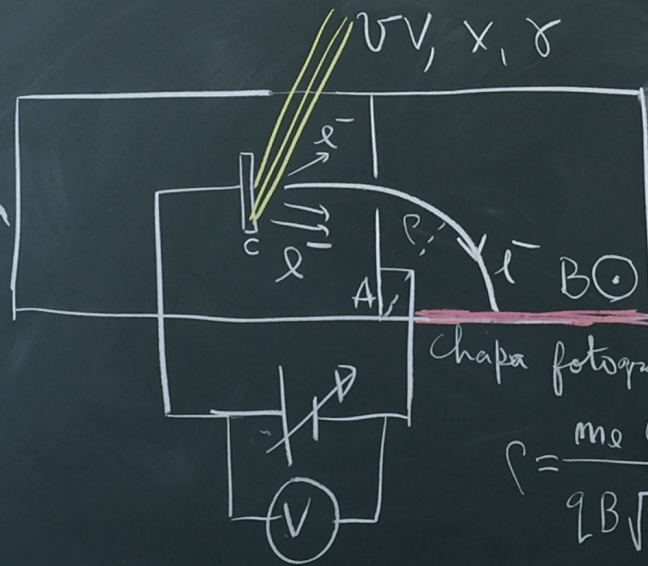 UV, X, γ
e⁻
C
e⁻
ρ
e⁻
A
B⊙
Chapa fotogr
ρ = me
qB√
V